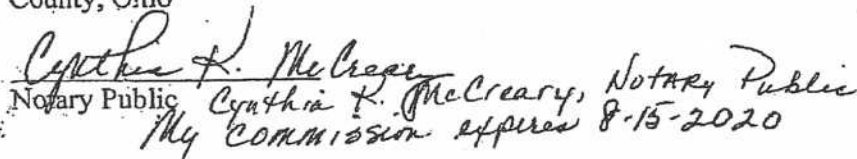 County, Ohio
Cynthia K. McCreary
Notary Public Cynthia K. McCreary, Notary Public
My commission expires 8-15-2020